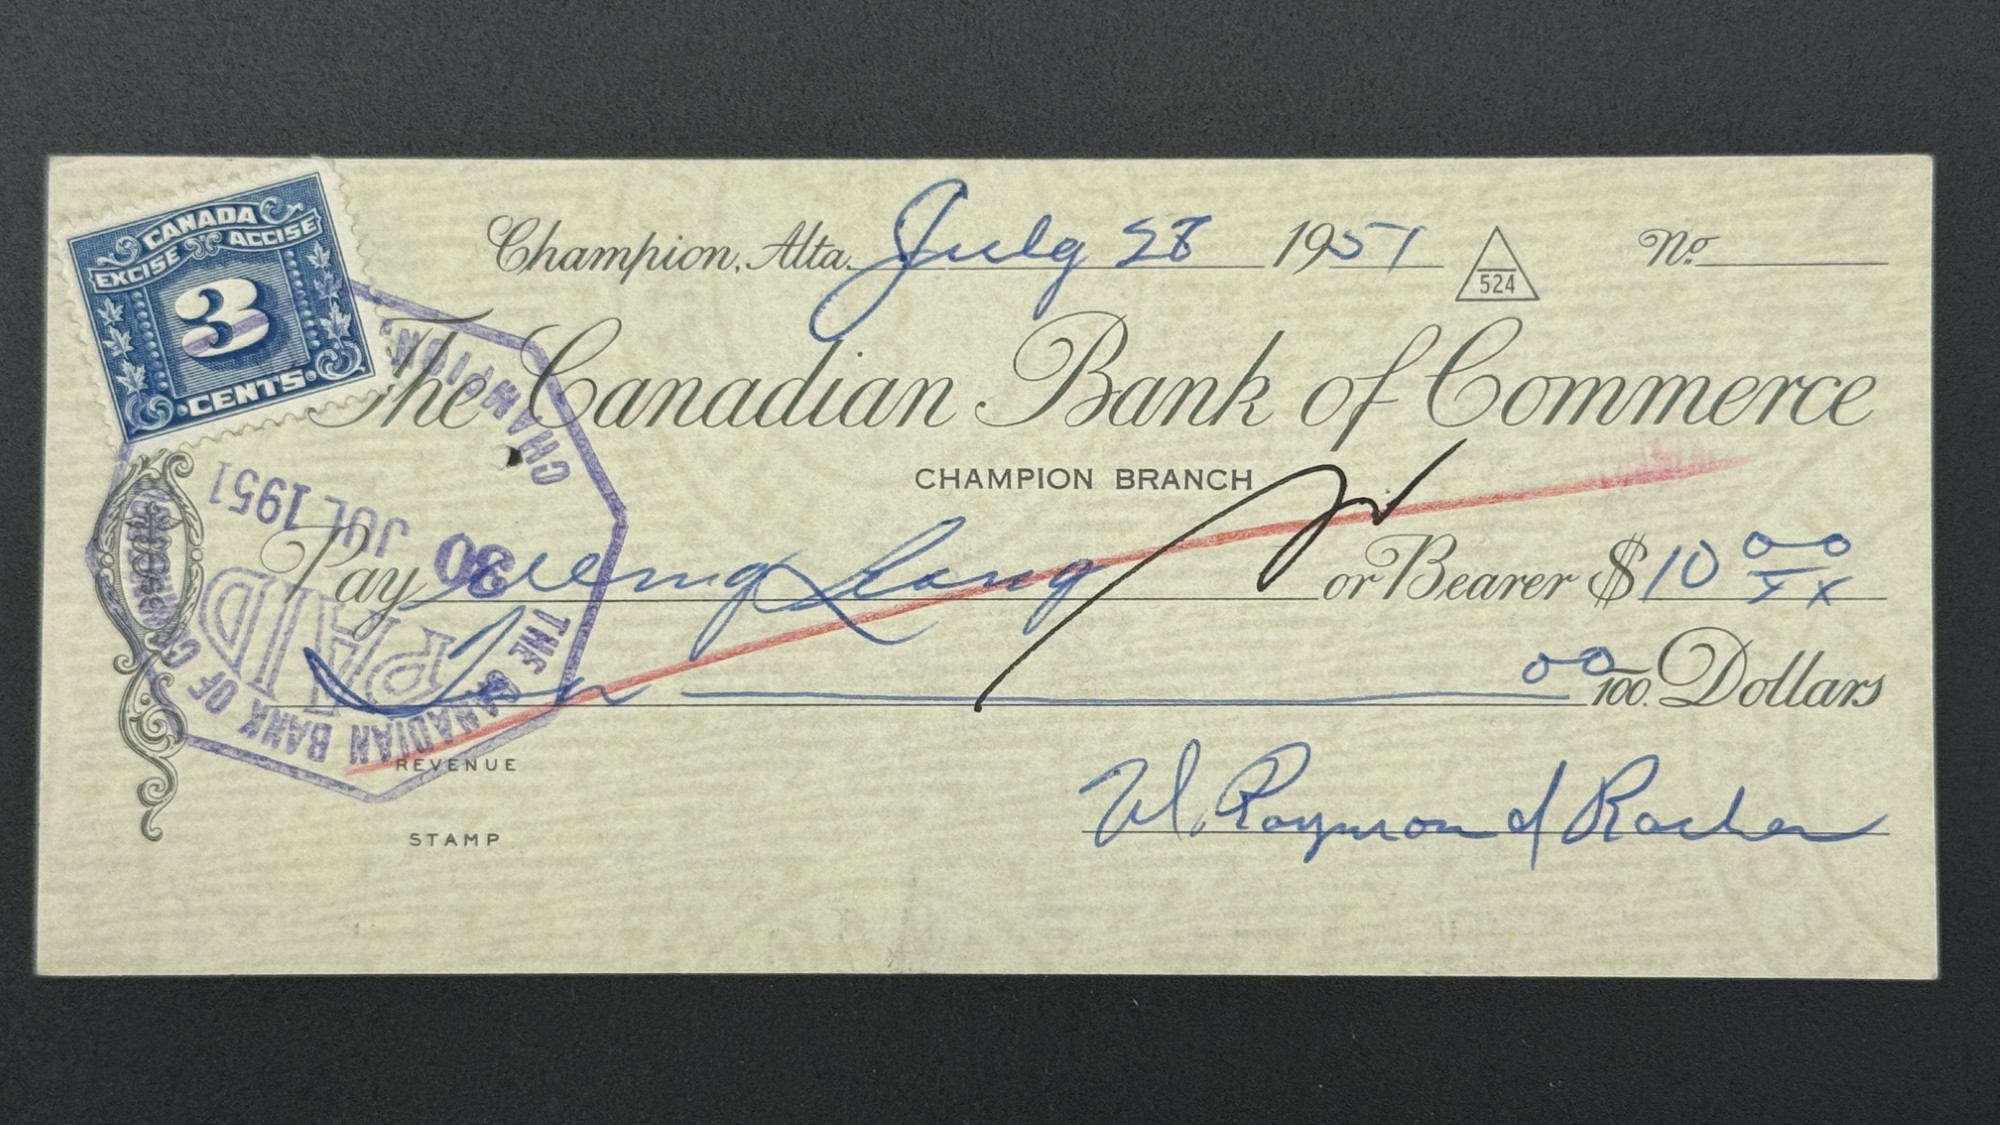 CANADA
EXCISE ACCISE
3
CENTS
Champion, Alta. July 28 1951 524 No.
The Canadian Bank of Commerce
CHAMPION BRANCH
Pay Weng Long or Bearer $10 00/xx
Ten 00/100 Dollars
W. Raymond
REVENUE
STAMP
THE CANADIAN BANK OF
PAID
30
JUL 1951
CHAMPION